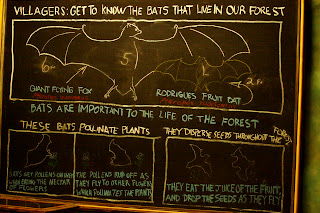 VILLAGERS: GET TO KNOW THE BATS THAT LIVE IN OUR FOREST
6
5
2 FT
GIANT FLYING FOX
RODRIGUES FRUIT BAT
BATS ARE IMPORTANT TO THE LIFE OF THE FOREST
THESE BATS POLLINATE PLANTS
BATS GET POLLEN ON
WHEN EATING THE NECTAR
OF FLOWERS
THE POLLEN RUBS OFF AS
THEY FLY TO OTHER FLOWERS
WHICH POLLINATES THE PLANTS
THEY DISPERSE SEEDS THROUGHOUT THE FOREST
THEY EAT THE JUICE OF THE FRUIT,
AND DROP THE SEEDS AS THEY FLY